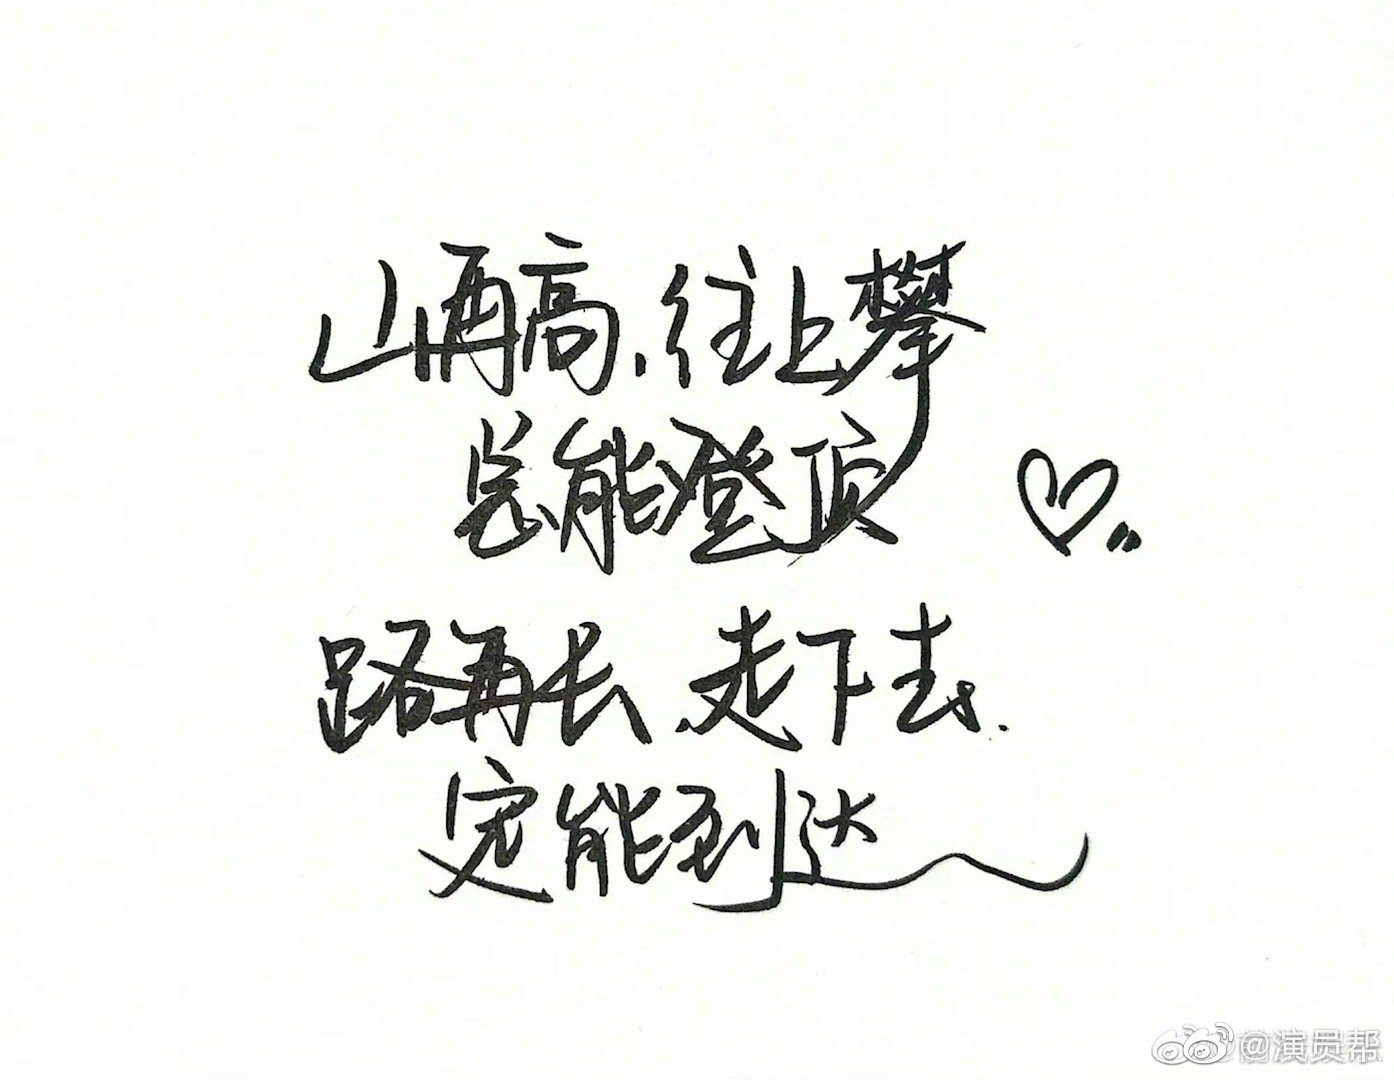 山再高,往上攀
总能登顶
路再长 走下去.
定能到达
@演员帮